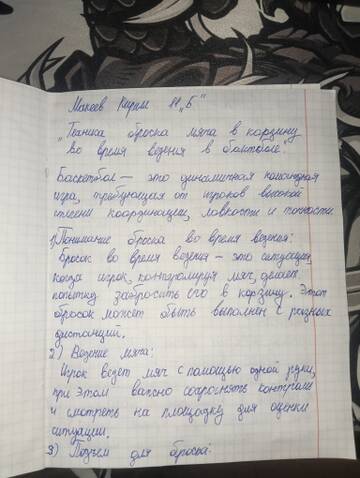 Макеев Кирилл 11 „Б"
„Техника броска мяча в корзину
во время ведения в баскетболе."
Баскетбол — это динамичная командная
игра, требующая от игроков высокой
степени координации, ловкости и точности.
1) Понимание броска во время ведения:
Бросок во время ведения – это ситуация,
когда игрок, контролируя мяч, делает
попытку забросить его в корзину. Этот
бросок может быть выполнен с разных
дистанций.
2) Ведение мяча:
Игрок ведет мяч с помощью одной руки,
при этом важно сохранять контроль
и смотреть на площадку для оценки
ситуации.
3) Подъем для броска: